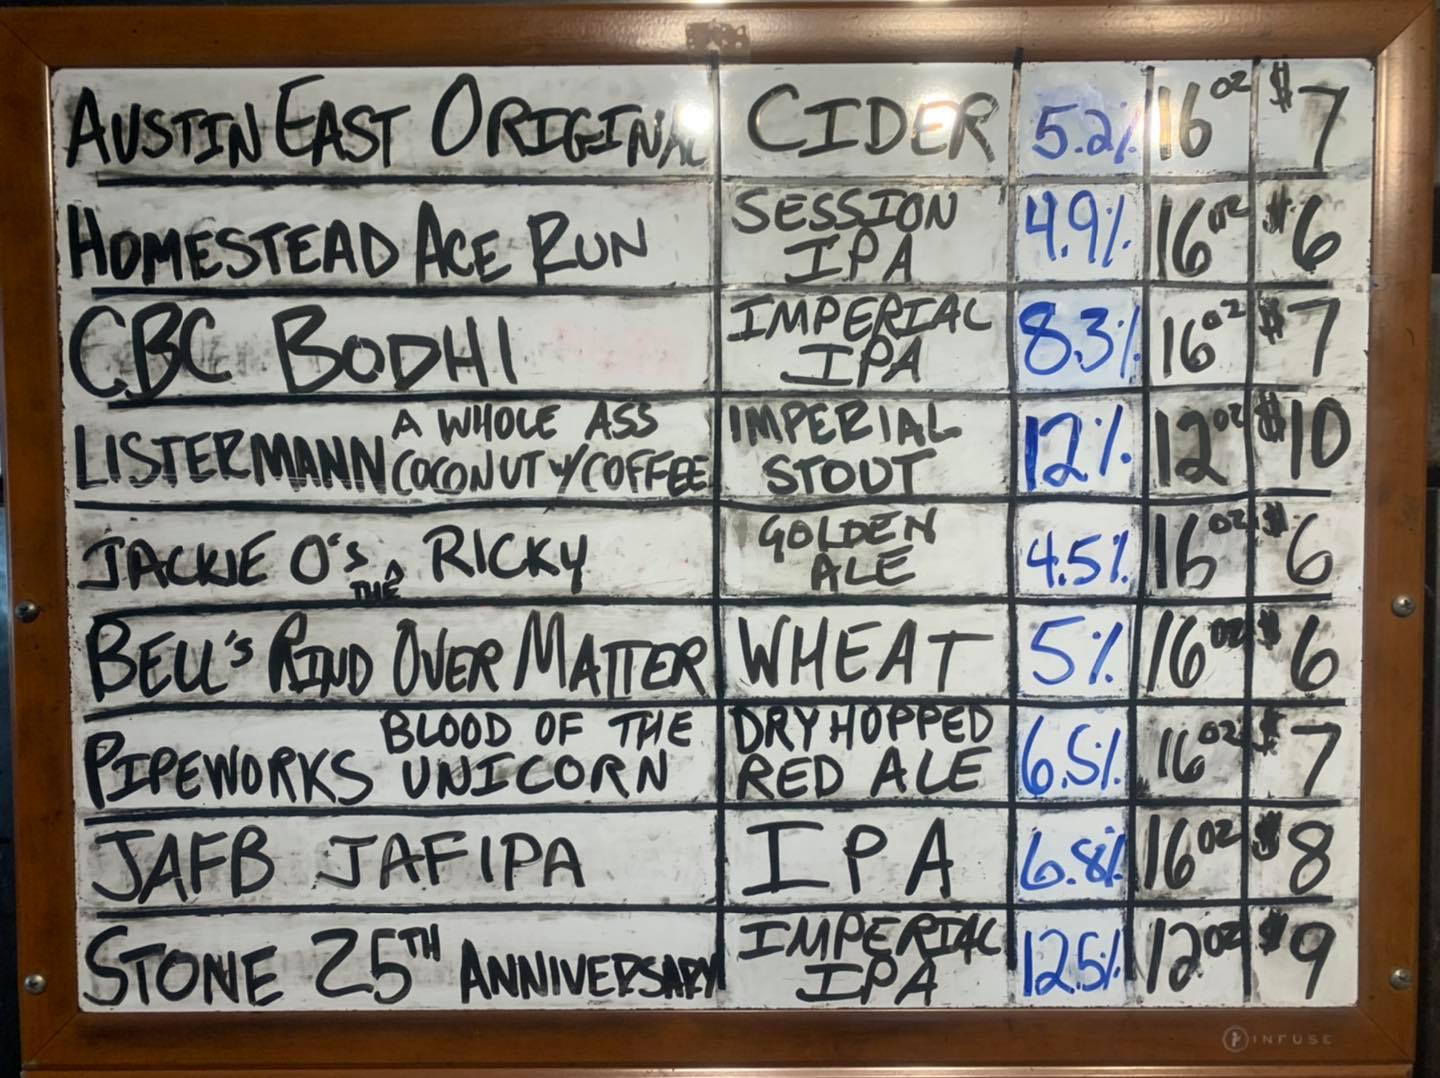 AUSTIN EAST ORIGINAL CIDER 5.2% 16OZ $7
HOMESTEAD ACE RUN SESSION IPA 4.9% 16OZ $6
CBC BODHI IMPERIAL IPA 8.3% 16OZ $7
LISTERMANN A WHOLE ASS COCONUT W/COFFEE IMPERIAL STOUT 12% 12OZ $10
JACKIE O'S THE RICKY GOLDEN ALE 4.5% 16OZ $6
BELL'S RIND OVER MATTER WHEAT 5% 16OZ $6
PIPEWORKS BLOOD OF THE UNICORN DRY HOPPED RED ALE 6.5% 16OZ $7
JAFB JAFIPA IPA 6.8% 16OZ $8
STONE 25TH ANNIVERSARY IMPERIAL IPA 12.5% 12OZ $9
INFUSE